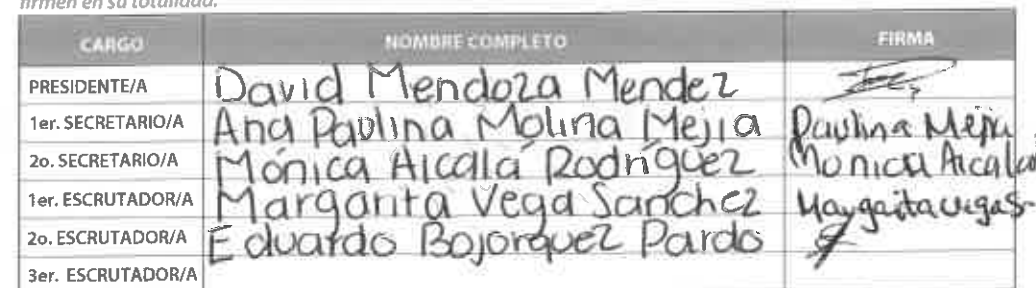 firmen en su totalidad.
CARGO NOMBRE COMPLETO FIRMA
PRESIDENTE/A David Mendoza Mendez
1er. SECRETARIO/A Ana Paulina Molina Mejia Paulina Mejia
2o. SECRETARIO/A Mónica Alcalá Rodríguez Monica Alcalá
1er. ESCRUTADOR/A Margarita Vega Sanchez Margarita vegas
2o. ESCRUTADOR/A Eduardo Bojorquez Pardo
3er. ESCRUTADOR/A